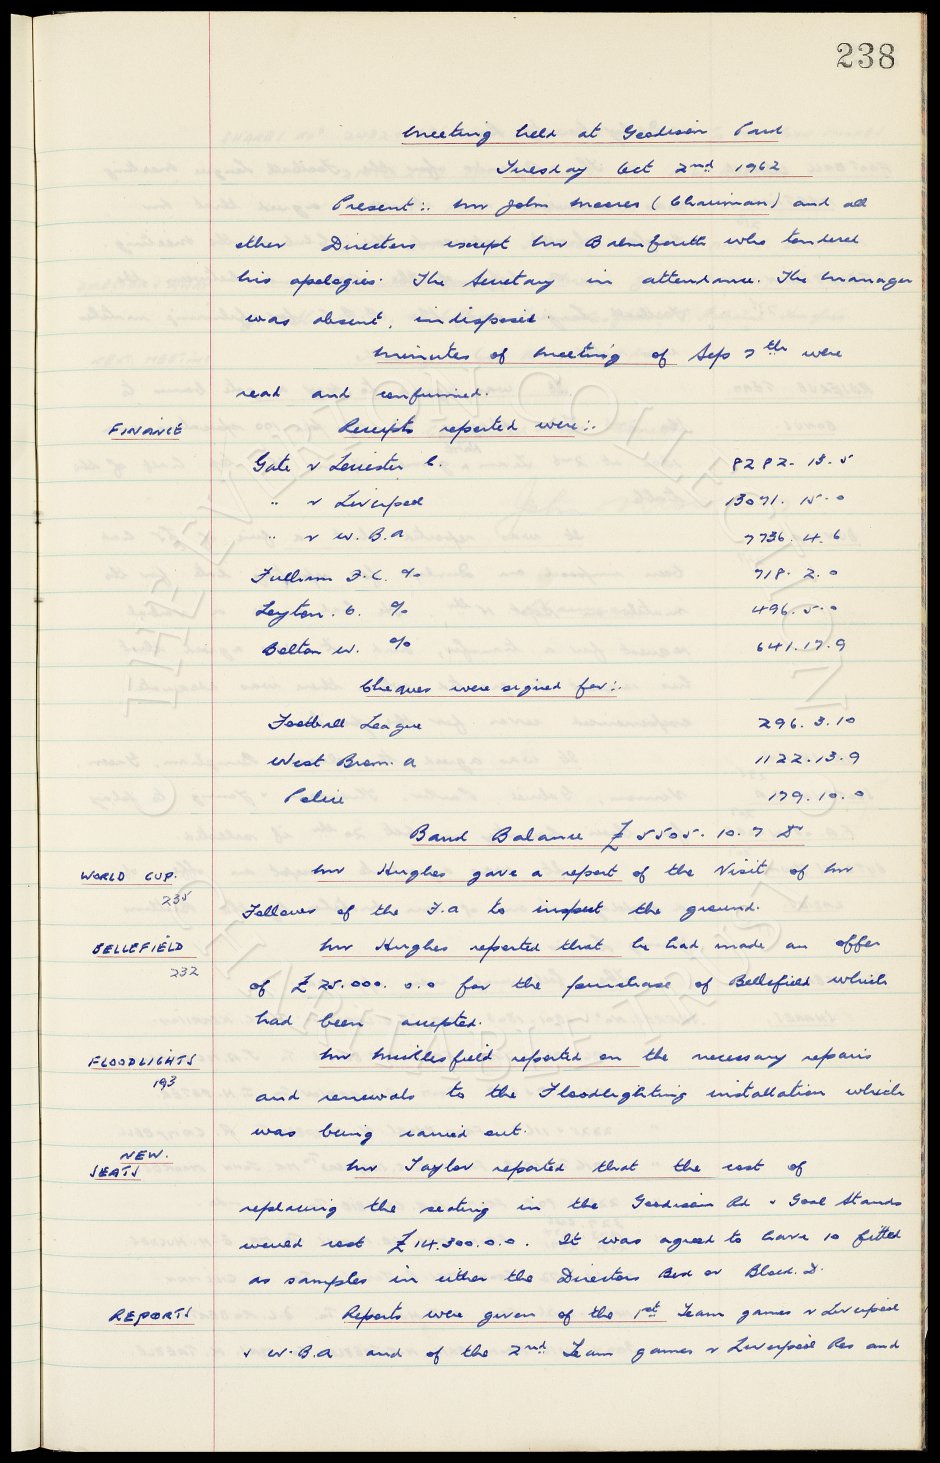 238
Meeting held at Goodison Park
Tuesday Oct 2nd 1962
Present:. Mr John Moores (Chairman) and all
other Directors except Mr Balmforth who tendered
his apologies. The Secretary in attendance. The Manager
was absent, indisposed.
Minutes of Meeting of Sep 7th were
read and confirmed.
FINANCE Receipts reported were:.
Gate v Leicester C. 8282. 13. 5
" v Liverpool 13071. 15. 0
" v W.B.A 7736. 4. 6
Fulham F.C. % 718. 2. 0
Leyton. O. % 496. 5. 0
Bolton W. % 641. 17. 9
Cheques were signed for:.
Football League 296. 3. 10
West Brom. A 1122. 13. 9
Police 179. 10. 0
Bank Balance £5505. 10. 7
WORLD CUP. Mr Hughes gave a report of the Visit of Mr
235
Fellows of the F.A to inspect the ground.
BELLEFIELD Mr Hughes reported that he had made an offer
232
of £25.000. 0. 0 for the purchase of Bellefield which
had been accepted.
FLOODLIGHTS Mr Micklesfield reported on the necessary repairs
193
and renewals to the Floodlighting installation which
was being carried out.
NEW.
SEATS Mr Taylor reported that the cost of
replacing the seating in the Goodison Rd & Goal Stands
would cost £14.300. 0. 0. It was agreed to have 10 fitted
as samples in either the Directors Box or Block. D.
REPORTS Reports were given of the 1st Team games v Liverpool
& W.B.A and of the 2nd Team games v Liverpool Res and